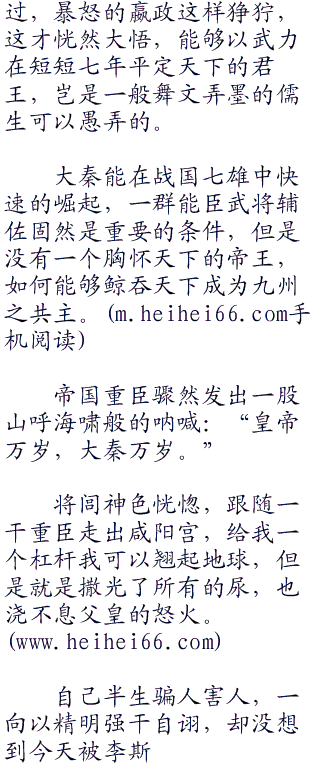 过，暴怒的嬴政这样狰狞，
这才恍然大悟，能够以武力
在短短七年平定天下的君
王，岂是一般舞文弄墨的儒
生可以愚弄的。
大秦能在战国七雄中快
速的崛起，一群能臣武将辅
佐固然是重要的条件，但是
没有一个胸怀天下的帝王，
如何能够鲸吞天下成为九州
之共主。(m.heihei66.com手
机阅读)
帝国重臣骤然发出一股
山呼海啸般的呐喊：“皇帝
万岁，大秦万岁。”
将闾神色恍惚，跟随一
干重臣走出咸阳宫，给我一
个杠杆我可以翘起地球，但
是就是撒光了所有的尿，也
浇不息父皇的怒火。
(www.heihei66.com)
自己半生骗人害人，一
向以精明强干自诩，却没想
到今天被李斯